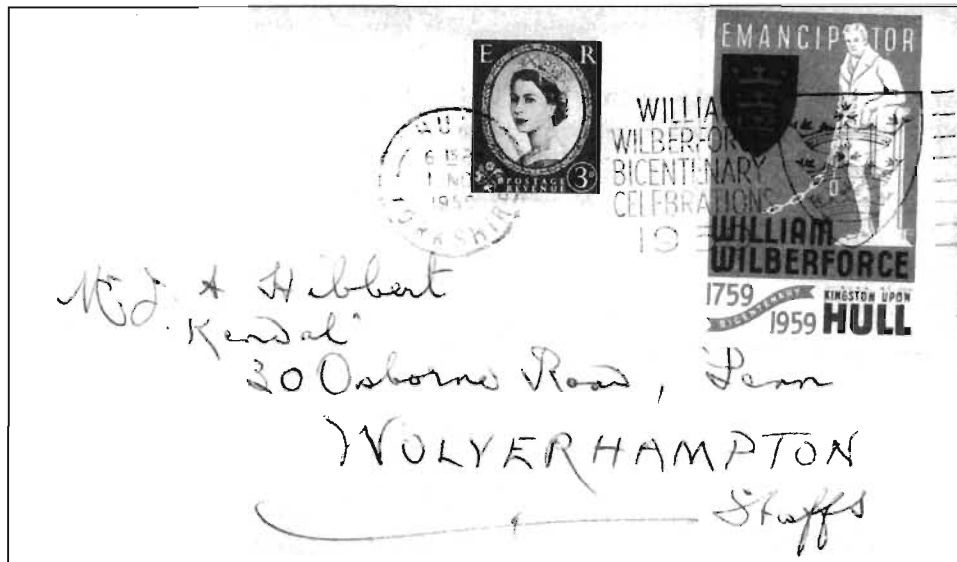 E R
POSTAGE
REVENUE 3D
HULL
6 15 P
1 NO
195
YORKSHIRE
WILLIAM
WILBERFORCE
BICENTENARY
CELEBRATIONS
195
EMANCIPATOR
WILLIAM
WILBERFORCE
1759
BICENTENARY
1959
KINGSTON UPON
HULL
Mr J. A Hibbert
"Kendal"
30 Osborne Road, Penn
WOLVERHAMPTON
Staffs